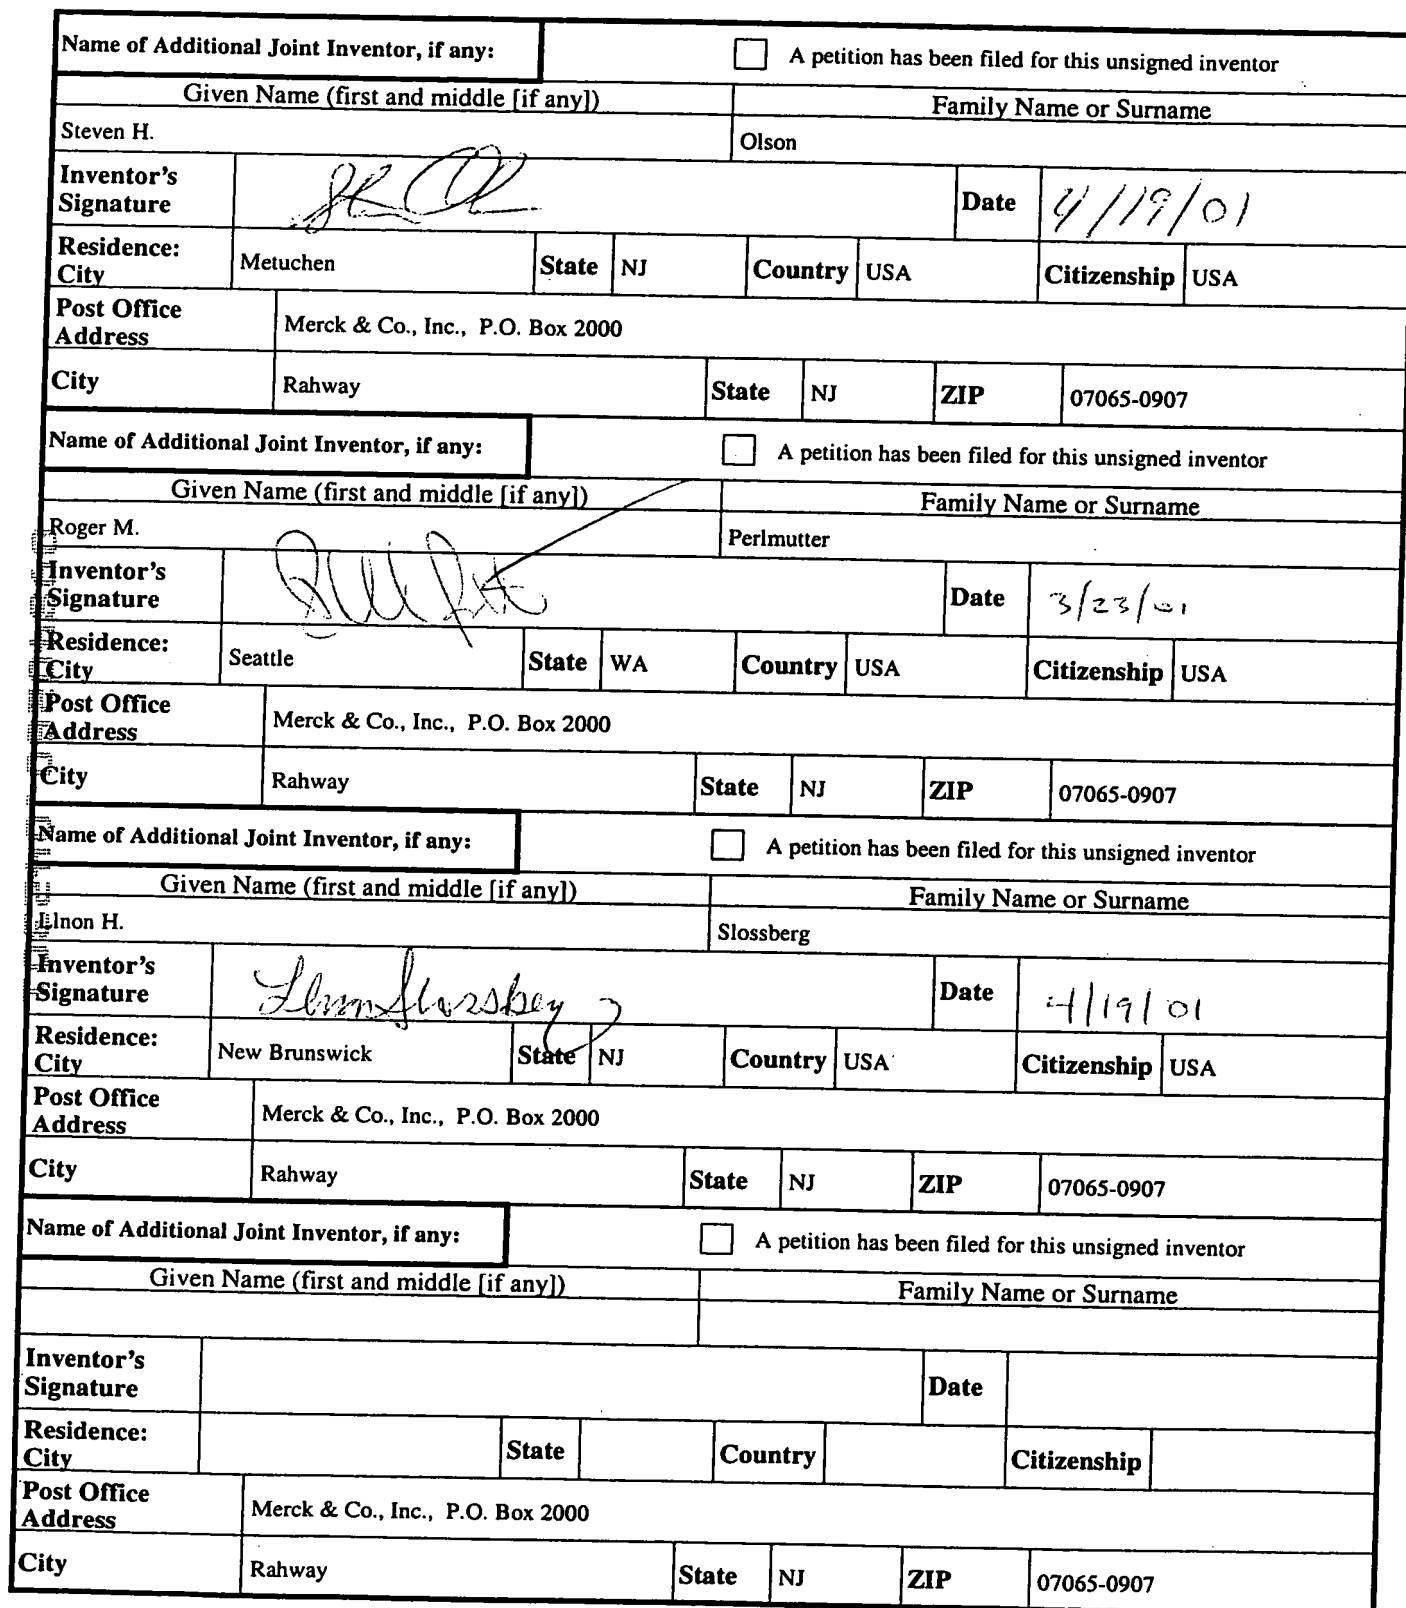 Name of Additional Joint Inventor, if any: A petition has been filed for this unsigned inventor
Given Name (first and middle [if any]) Family Name or Surname
Steven H. Olson
Inventor's Signature Date 4/19/01
Residence: City Metuchen State NJ Country USA Citizenship USA
Post Office Address Merck & Co., Inc., P.O. Box 2000
City Rahway State NJ ZIP 07065-0907
Name of Additional Joint Inventor, if any: A petition has been filed for this unsigned inventor
Given Name (first and middle [if any]) Family Name or Surname
Roger M. Perlmutter
Inventor's Signature Date 3/23/01
Residence: City Seattle State WA Country USA Citizenship USA
Post Office Address Merck & Co., Inc., P.O. Box 2000
City Rahway State NJ ZIP 07065-0907
Name of Additional Joint Inventor, if any: A petition has been filed for this unsigned inventor
Given Name (first and middle [if any]) Family Name or Surname
LInon H. Slossberg
Inventor's Signature Date 4/19/01
Residence: City New Brunswick State NJ Country USA Citizenship USA
Post Office Address Merck & Co., Inc., P.O. Box 2000
City Rahway State NJ ZIP 07065-0907
Name of Additional Joint Inventor, if any: A petition has been filed for this unsigned inventor
Given Name (first and middle [if any]) Family Name or Surname
Inventor's Signature Date
Residence: City State Country Citizenship
Post Office Address Merck & Co., Inc., P.O. Box 2000
City Rahway State NJ ZIP 07065-0907